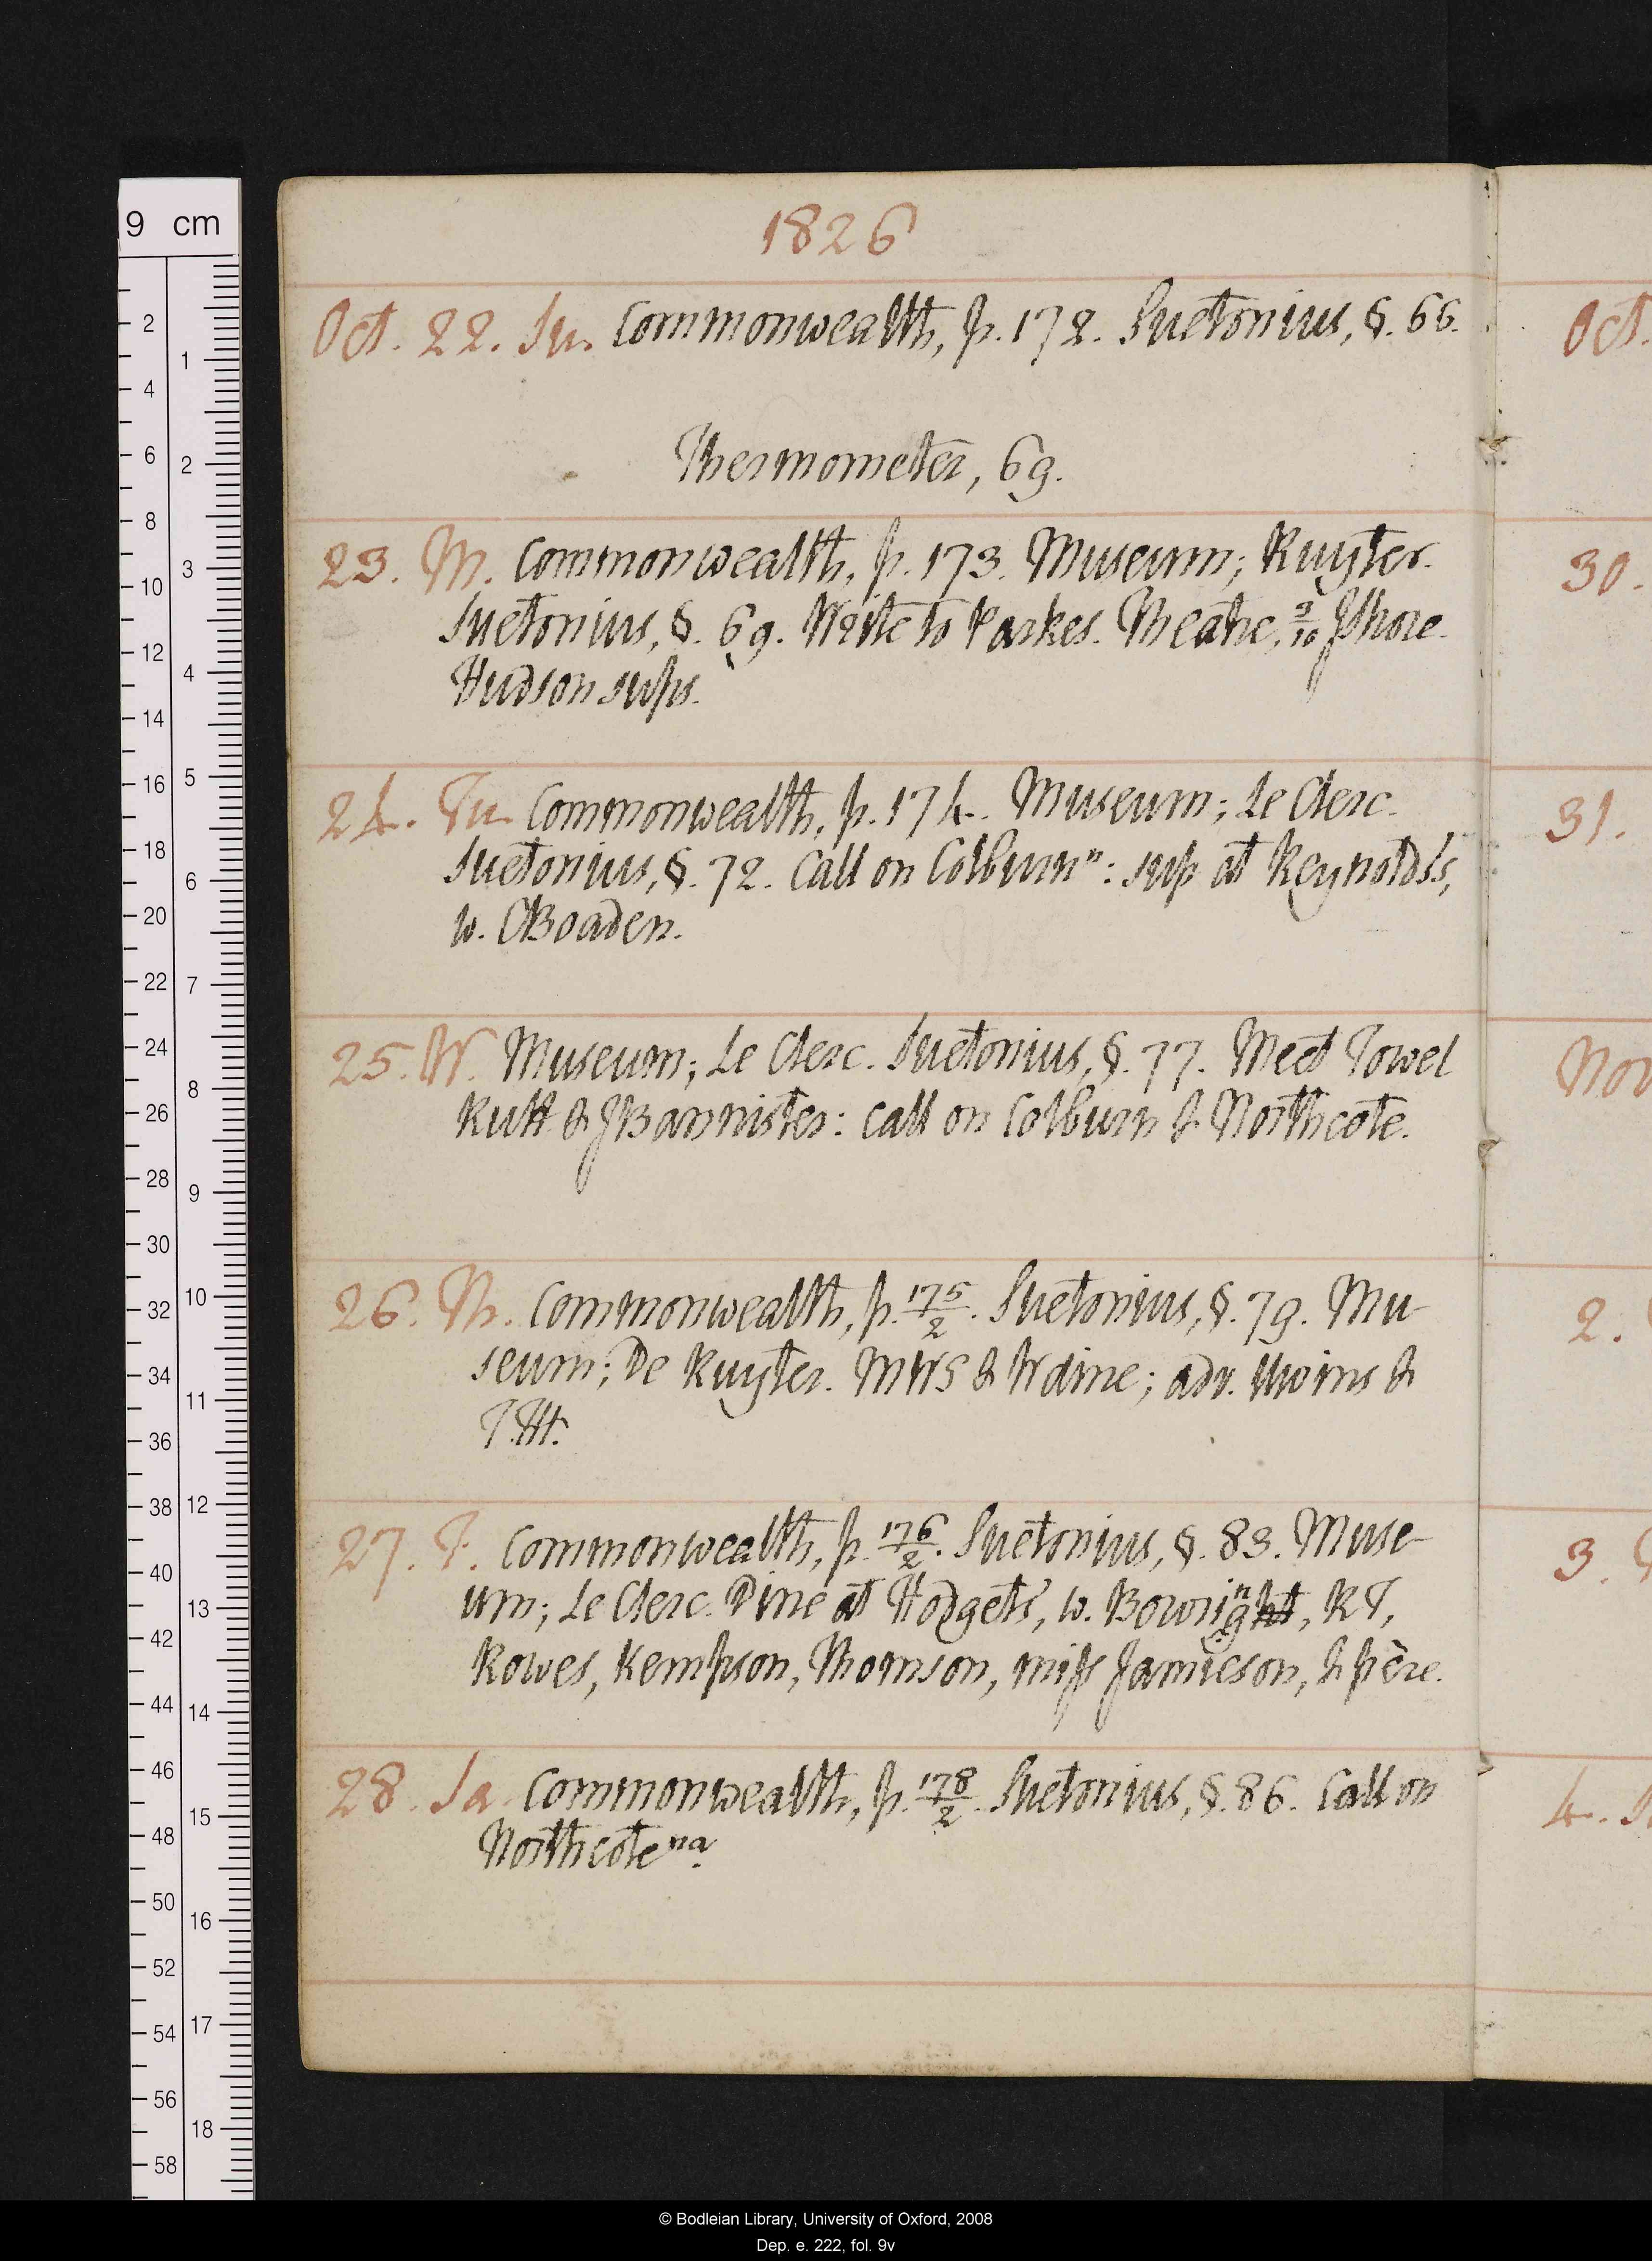 1826
Oct. 22. Su. Commonwealth, p. 172. Suetonius, §. 66.
Thermometer, 69.
23. M. Commonwealth, p. 173. Museum; Ruyter.
Suetonius, §. 69. Write to Parkes. Theatre, 9/10 JShore.
Hudson sups.
24. Tu. Commonwealth, p. 174. Museum; Le Clerc.
Suetonius, §. 72. Call on Colburn n: sup at Reynolds's,
w. Boaden.
25. W. Museum; Le Clerc. Suetonius, §. 77. Meet Towel
Rutt & JBannister: call on Colburn & Northcote.
26. Th. Commonwealth, p. 175/2. Suetonius, §. 79. Mu-
seum; De Ruyter. MWS & W dine; adv. Moins &
T.H.
27. F. Commonwealth, p. 176/2. Suetonius, §. 83. Muse-
um; Le Clerc. Dine at Hodgets', w. Bowring, RT,
Rowes, Kempson, Thomson, miss Jamieson, & père.
28. Sa. Commonwealth, p. 178/2. Suetonius, §. 86. Call on
Northcote na.
Oct.
30.
31.
Nov
2.
3.
4.
9 cm
© Bodleian Library, University of Oxford, 2008
Dep. e. 222, fol. 9v